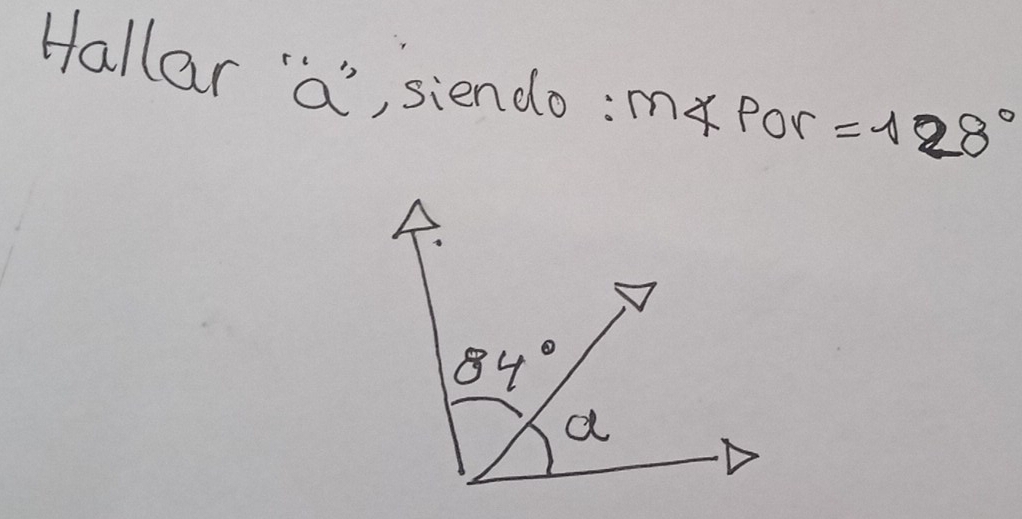 Hallar "a", siendo : m∡ Por = 128°
84°
a